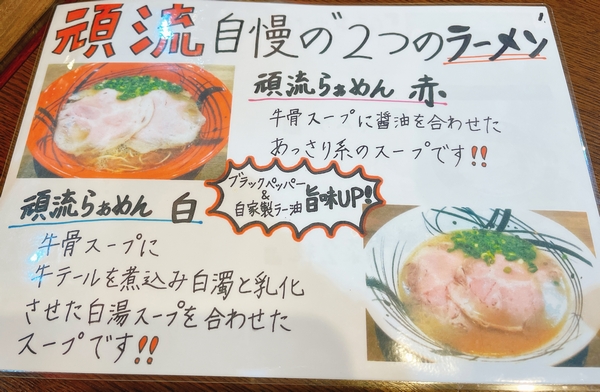 頑流自慢の"2つのラーメン"
頑流らぁめん 赤
牛骨スープに醤油を合わせた
あっさり系のスープです!!
ブラックペッパー
&
自家製ラー油
旨味UP!
頑流らぁめん 白
牛骨スープに
牛テールを煮込み白濁と乳化
させた白湯スープを合わせた
スープです!!